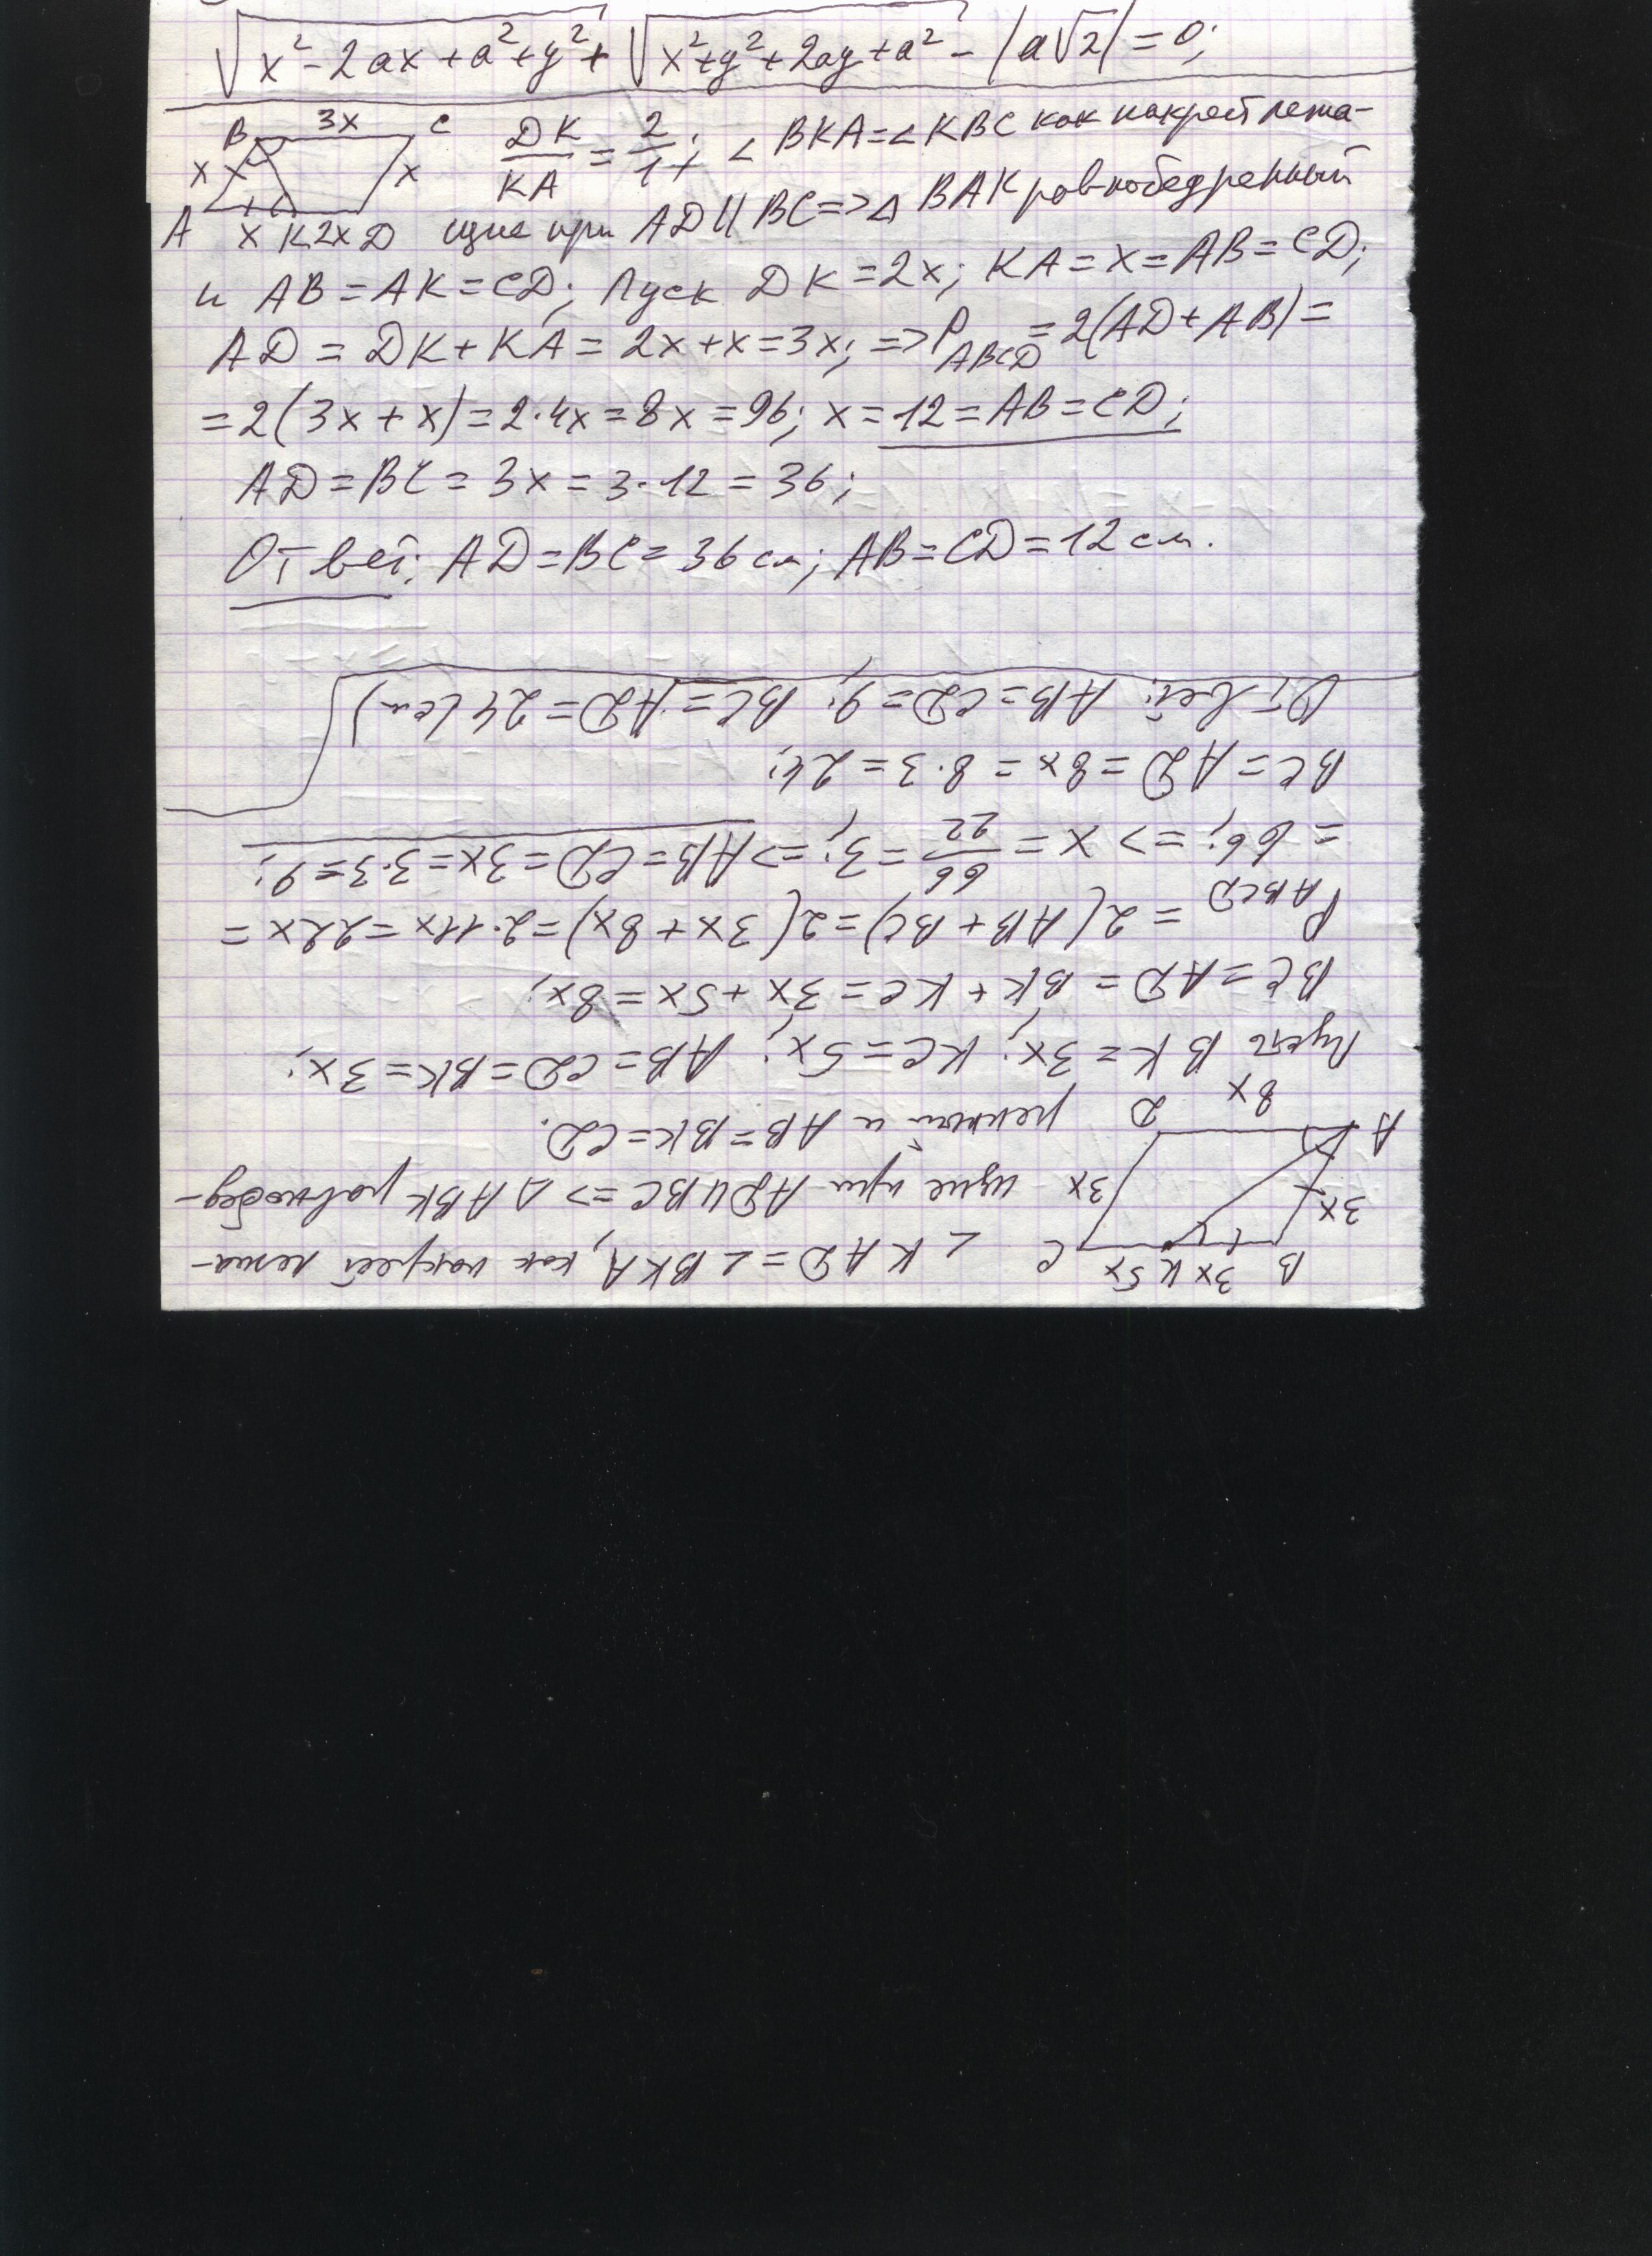 √x²-2ax+a²+y² + √x²+y²+2ay+a² - |a√2| = 0;
B 3x C DK/KA = 2/1; ∠BKA=∠KBC как накрест лежа-
x x
A x K 2x D щие при AD||BC=>△BAK равнобедренный
и AB=AK=CD; Пуск DK=2x; KA=x=AB=CD;
AD=DK+KA=2x+x=3x; =>P ABCD =2(AD+AB)=
=2(3x+x)=2·4x=8x=96; x=12=AB=CD;
AD=BC=3x=3·12=36;
Ответ: AD=BC=36 см; AB=CD=12 см.
B 3x K 5x C ∠KAD=∠BKA, как накрест лежа-
3x 3x щие при AD||BC=>△ABK равнобед-
A 8x D ренный и AB=BK=CD.
Пусть BK=3x; KC=5x; AB=CD=BK=3x;
BC=AD=BK+KC=3x+5x=8x;
P ABCD =2(AB+BC)=2(3x+8x)=2·11x=22x=
=66; =>x=66/22=3; =>AB=CD=3x=3·3=9;
BC=AD=8x=8·3=24;
Ответ: AB=CD=9; BC=AD=24(см)